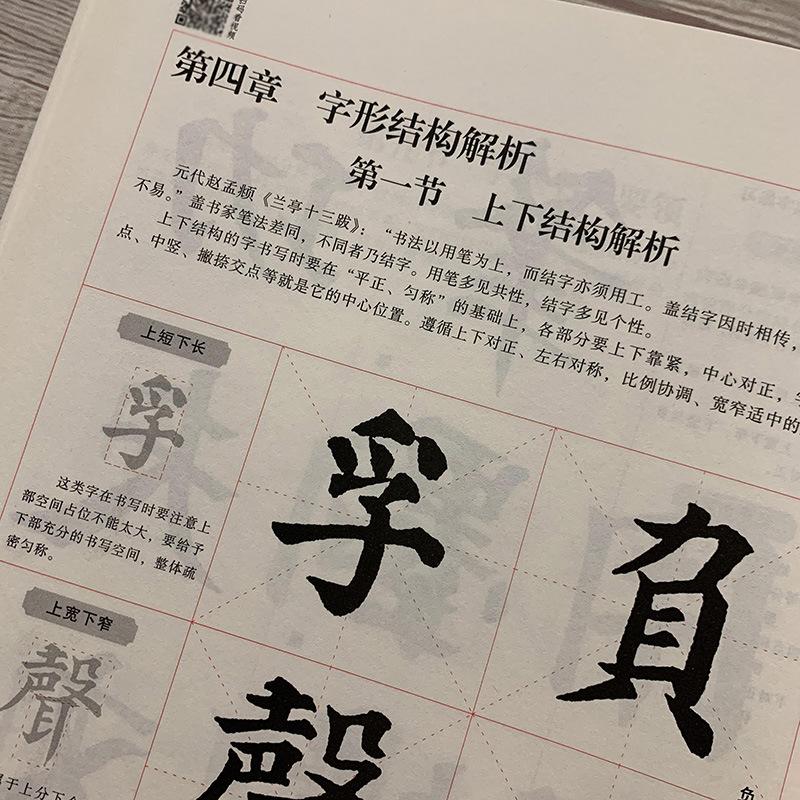 扫码看视频
第四章 字形结构解析
第一节 上下结构解析
元代赵孟頫《兰亭十三跋》：“书法以用笔为上，而结字亦须用工。盖结字因时相传，
不易。”盖书家笔法差同，不同者乃结字。用笔多见共性，结字多见个性。
上下结构的字书写时要在“平正、匀称”的基础上，各部分要上下靠紧，中心对正，
点、中竖、撇捺交点等就是它的中心位置。遵循上下对正、左右对称，比例协调、宽窄适中的
上短下长
孚
这类字在书写时要注意上
部空间占位不能太大，要给予
下部充分的书写空间，整体疏
密匀称。
孚 負
上宽下窄
聲
聲